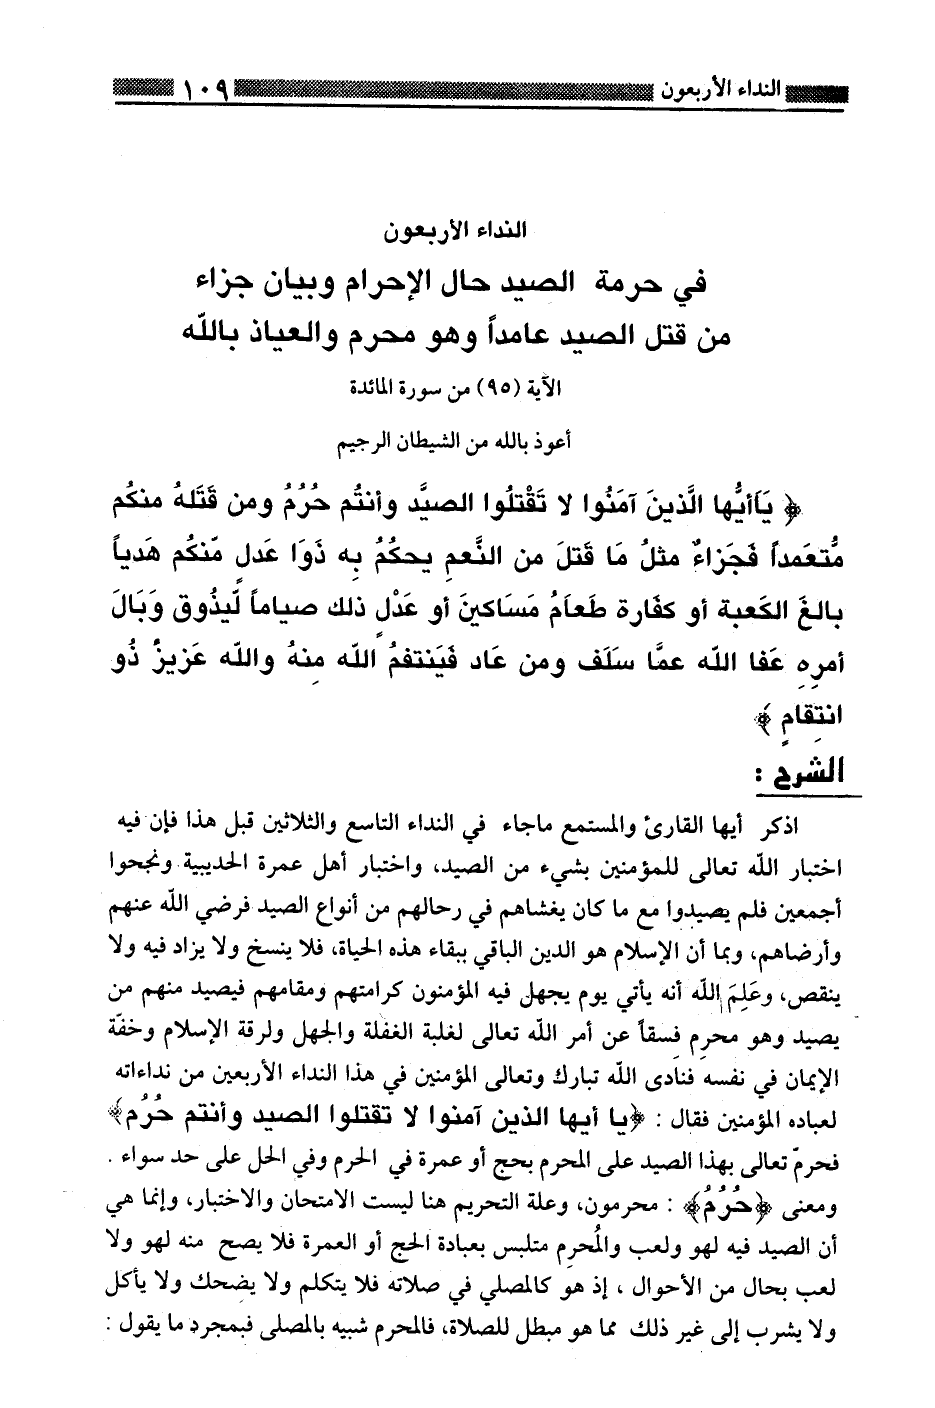 النداء الأربعون ١٠٩
النداء الأربعون
في حرمة الصيد حال الإحرام وبيان جزاء
من قتل الصيد عامداً وهو محرم والعياذ بالله
الآية (٩٥) من سورة المائدة
أعوذ بالله من الشيطان الرجيم
﴿ يَاأَيُّها الَّذينَ آمَنُوا لا تَقْتلُوا الصيَّد وأنتُم حُرُمُ ومن قَتَلهُ منكُم
مُّتعَمداً فَجَزاءُ مثلُ مَا قَتلَ من النَّعمِ يحكُمُ بِه ذَوَا عَدلٍ مّنكُم هَدياً
بالغَ الكَعبة أو كفَارة طَعاَمُ مَسَاكينَ أو عَدْلٍ ذلك صياماً لّيذُوق وَبَالَ
أمرِهِ عَفا الله عمَّا سَلَف ومن عَاد فَيَنتقمُ الله مِنهُ والله عَزيزُ ذُو
انتِقامٍ ﴾
الشرح :
اذكر أيها القارئ والمستمع ماجاء في النداء التاسع والثلاثين قبل هذا فإن فيه
اختبار الله تعالى للمؤمنين بشيء من الصيد، واختبار أهل عمرة الحديبية ونجحوا
أجمعين فلم يصيدوا مع ما كان يغشاهم في رحالهم من أنواع الصيد فرضي الله عنهم
وأرضاهم، وبما أن الإسلام هو الدين الباقي ببقاء هذه الحياة، فلا ينسخ ولا يزاد فيه ولا
ينقص، وعَلِمَ الله أنه يأتي يوم يجهل فيه المؤمنون كرامتهم ومقامهم فيصيد منهم من
يصيد وهو محرم فسقاً عن أمر الله تعالى لغلبة الغفلة والجهل ولرقة الإسلام وخفّة
الإيمان في نفسه فنادى الله تبارك وتعالى المؤمنين في هذا النداء الأربعين من نداءاته
لعباده المؤمنين فقال : ﴿يا أيها الذين آمنوا لا تقتلوا الصيد وأنتم حُرُم﴾
فحرمّ تعالى بهذا الصيد على المحرم بحج أو عمرة في الحرم وفي الحل على حد سواء .
ومعنى ﴿حُرُمُ﴾ : محرمون، وعلة التحريم هنا ليست الامتحان والاختبار، وإنما هي
أن الصيد فيه لهو ولعب والمُحرم متلبس بعبادة الحج أو العمرة فلا يصح منه لهو ولا
لعب بحال من الأحوال ، إذ هو كالمصلي في صلاته فلا يتكلم ولا يضحك ولا يأكل
ولا يشرب إلى غير ذلك مما هو مبطل للصلاة، فالمحرم شبيه بالمصلى فبمجرد ما يقول :